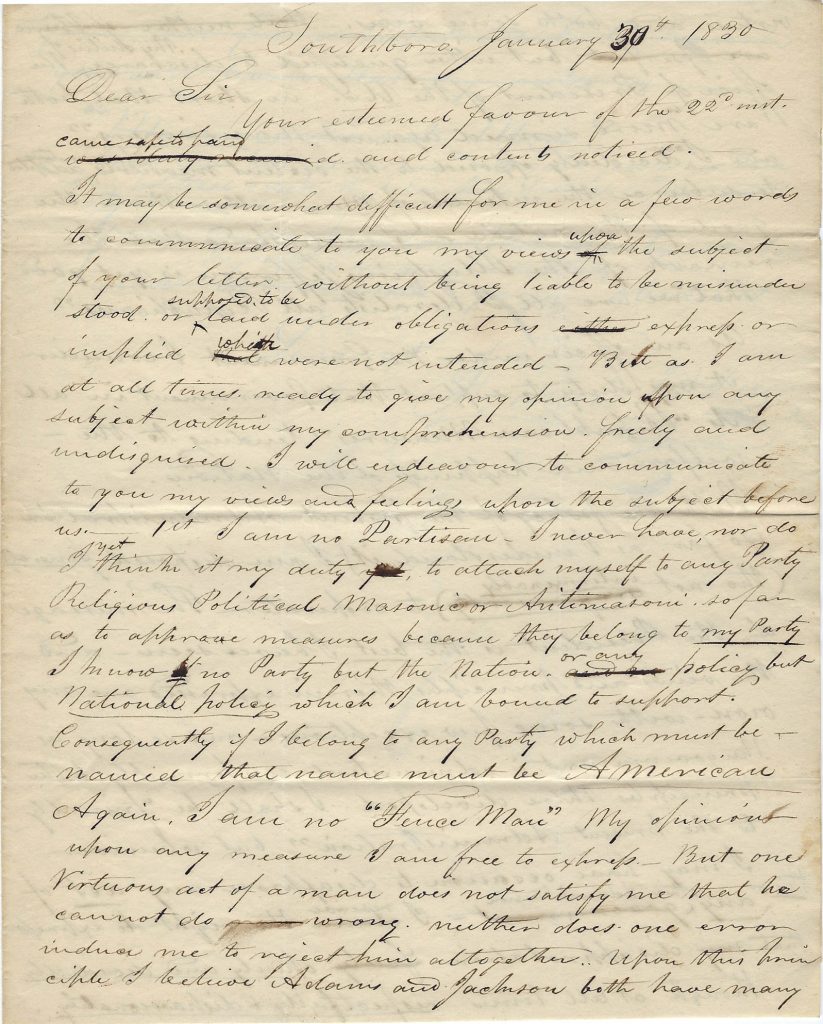 Southboro, January 30th. 1830
Dear Sir
Your esteemed favour of the 22d inst.
came safe to hand
was duly received. and contents noticed.
It may be somewhat difficult for me in a few words
to communicate to you my views upon the subject
of your letter, without being liable to be misunder
stood. or supposed to be laid under obligations either express. or
implied which were not intended – But as I am
at all times ready to give my opinion upon any
subject within my comprehension. freely and
undisguised. I will endeavour to communicate
to you my views and feelings upon the subject before
us. — 1st. I am no Partisan – I never have, nor do
I yet think it my duty yet, to attach myself to any Party
Religious Political Masonic or Antimasoni. so far
as to approve measures because they belong to my Party
I know no Party but the Nation. or any policy but
National policy which I am bound to support.
Consequently if I belong to any Party which must be –
named that name must be American
Again, I am no "Fence Man" My opinions
upon any measure I am free to express – But one
Virtuous act of a man does not satisfy me that he
cannot do wrong. neither does one error
induce me to reject him altogether.. Upon this prin
ciple I believe Adams and Jackson both have many